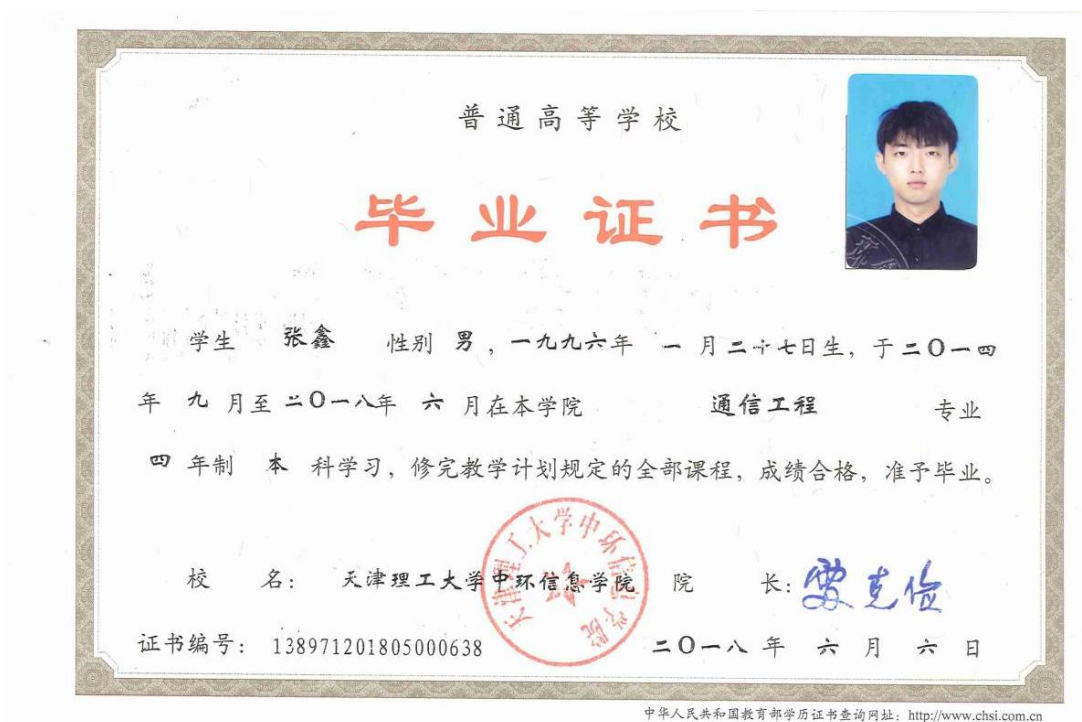 普通高等学校
毕业证书
学生 张鑫 性别 男，一九九六年 一 月二十七日生，于二〇一四
年 九 月至 二〇一八年 六 月在本学院 通信工程 专业
四 年制 本 科学习，修完教学计划规定的全部课程，成绩合格，准予毕业。
天津理工大学中环信息学院
校 名： 天津理工大学中环信息学院 院 长：
证书编号： 138971201805000638 二〇一八 年 六 月 六 日
中华人民共和国教育部学历证书查询网址：http://www.chsi.com.cn